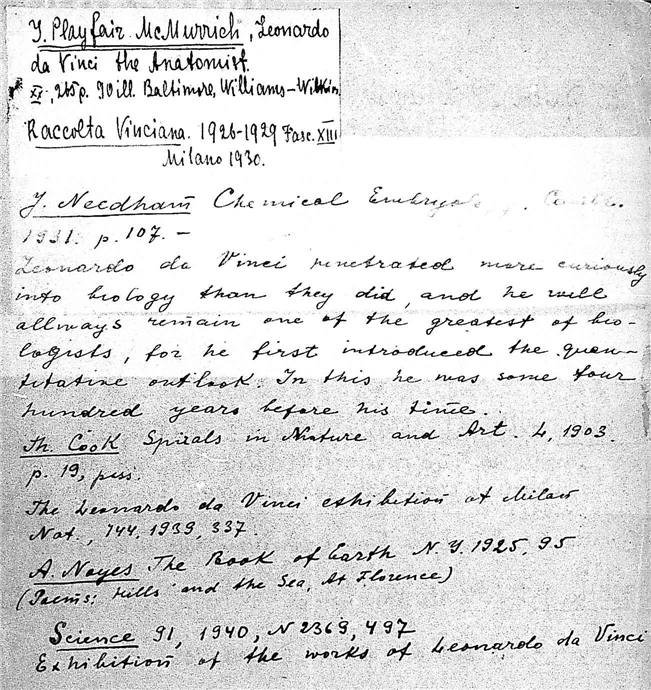 J. Playfair McMurrich, Leonardo
da Vinci the Anatomist.
XX, 265p. 90ill. Baltimore, Williams-Wilkin
Raccolta Vinciana. 1926-1929 Fasc. XIII
Milano 1930.
J. Needham Chemical Embryolo
1931. p. 107. –
Leonardo da Vinci penetrated more curiously
into biology than they did, and he will
allways remain one of the greatest of bio-
logists, for he first introduced the quan-
titative outlook. In this he was some four
hundred years before his time.
Th. Cook Spirals in Nature and Art. L, 1903.
p. 19, pass.
The Leonardo da Vinci exhibition at Milan
Nat., 144, 1939, 337.
A. Noyes The Book of Earth N. Y. 1925, 95
(Poems: Hills and the Sea, At Florence)
Science 91, 1940, N 2369, 497
Exhibition of the works of Leonardo da Vinci